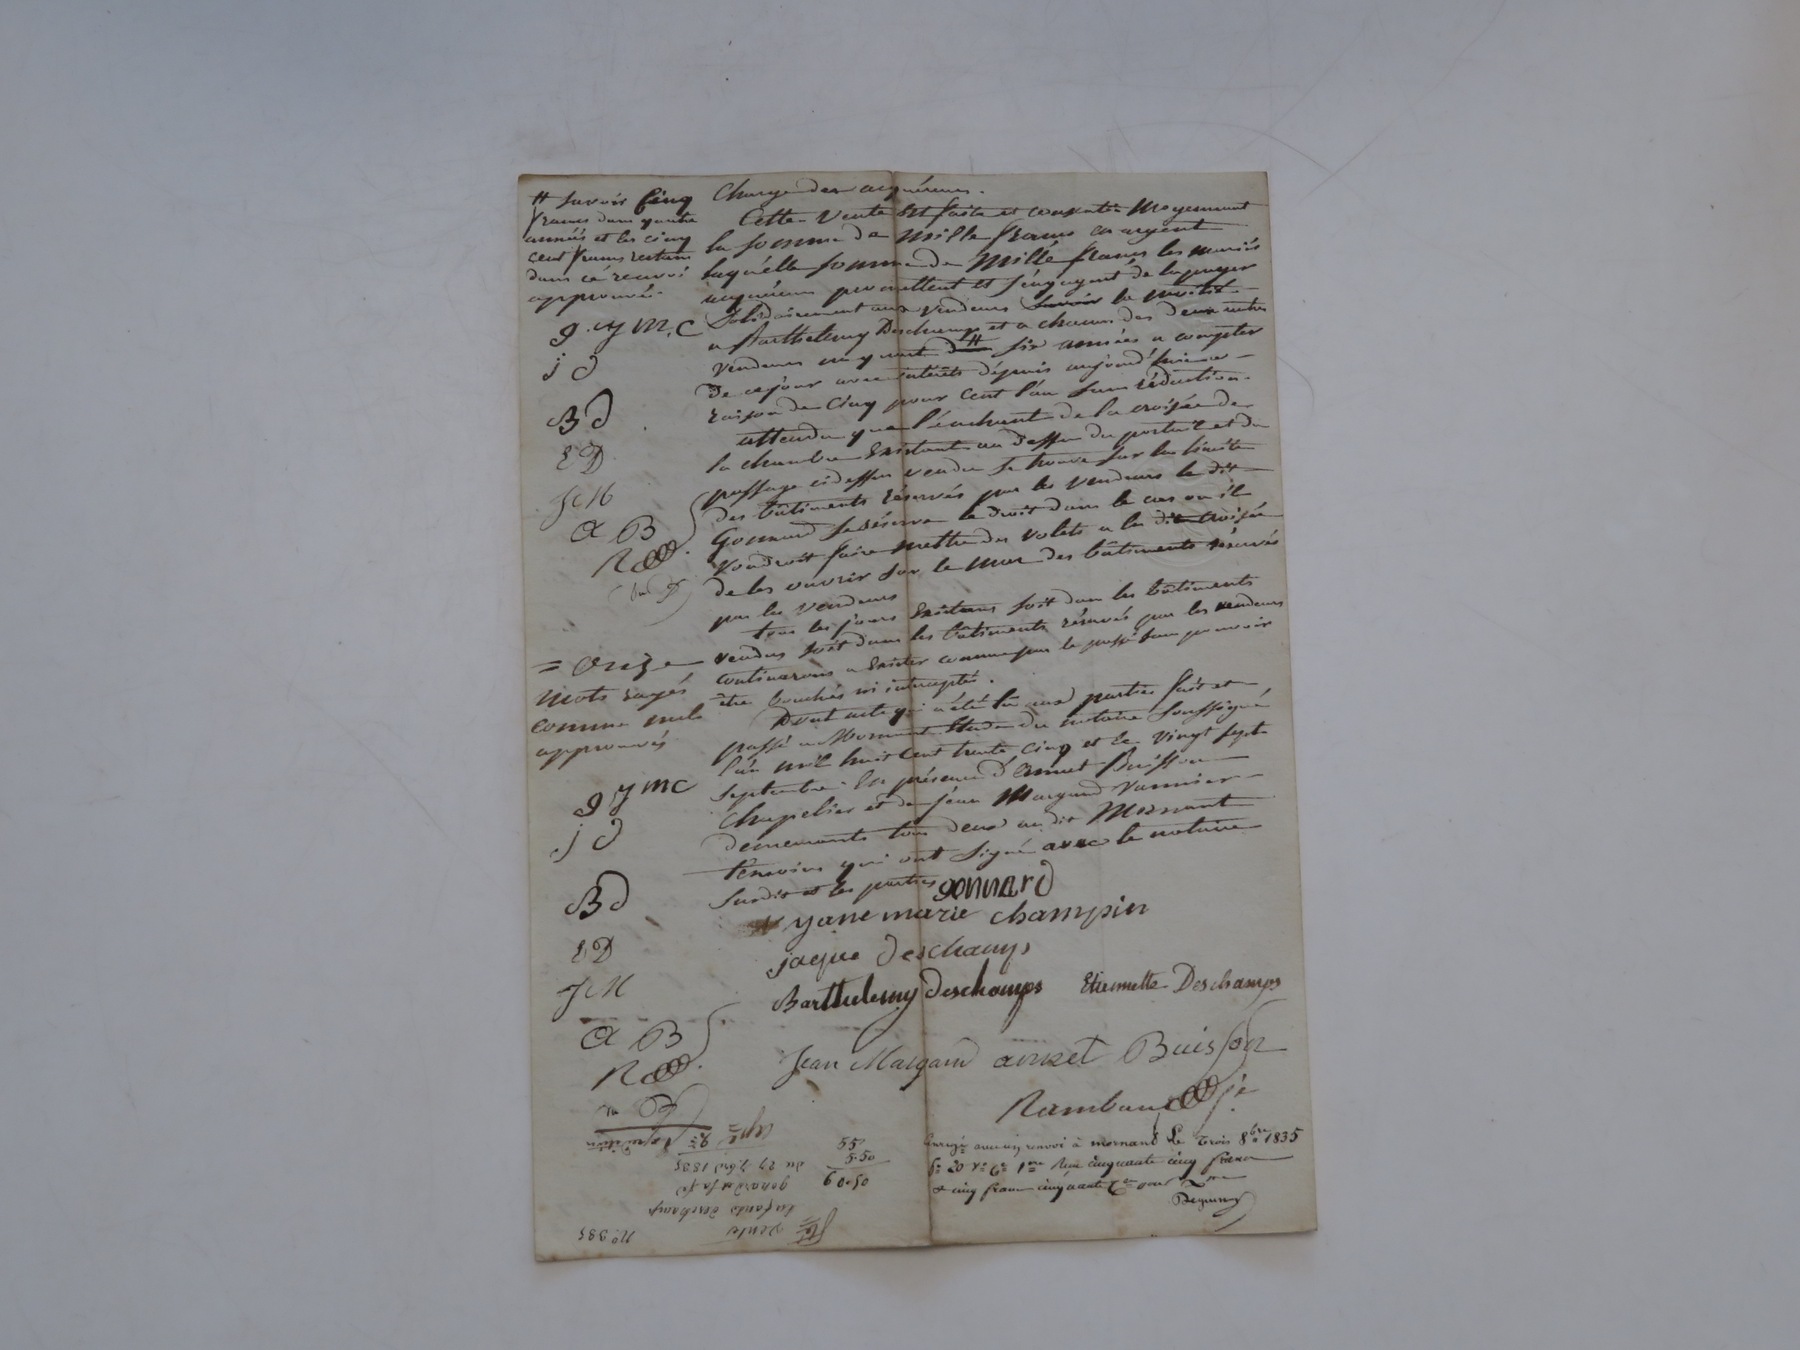 # Savoir Cinq
francs dans quatre
années et les cinq
cent francs restant
dans ce renvoi
approuvé.
g. y m. c
j d
B d
E D
J M
a B
R
Charge des acquéreurs.
Cette Vente est faite et consentie Moyennant
la somme de Mille francs en argent
laquelle somme de Mille francs les mariés
acquéreurs promettent et s'engagent de la payer
solidairement aux vendeurs Savoir la moitié
a Barthelemy Deschamps et a chacun des deux autres
vendeurs un quart # six années a compter
de ce jour avec intérêts depuis aujourd'hui a
raison de Cinq pour Cent l'an sans réduction.
attendu que l'éanchant de la croisée de
la chambre Existante au dessus du portail et du
passage cidessus vendu se trouve sur la limite
des bâtiments réservés par les Vendeurs le dit
Gonnard se réserve le droit dans le cas ou il
voudroit faire mettre des volets a la dite croisée
de les ouvrir sur le Mur des bâtiments réservés
par les Vendeurs
tous les jours Existans soit dans les bâtiments
vendus soit dans les bâtiments réservés par les vendeurs
continuerons a Exister comme par le passé sans pouvoir
être bouchés ni interceptés.
= Onze
Mots rayés
comme nuls
approuvés
g y m c
j d
B d
E D
J M
a B
R
Dont acte qui a été lu aux parties fait et
passé a Mornant Etude du notaire soussigné
l'an mil huit cent trente cinq et le vingt sept
septembre En présence d'Annet Buisson
Chapelier et de jean Margand Vannier
demeurants tous deux au dit Mornant
témoins qui ont signé avec le notaire
susdit et les parties
gonnard
yane marie champin
jaque deschamps
Barthelemy Deschamps Etiennette Deschamps
Jean Margand annet Buisson
Rambaud
Enregé avec un renvoi à mornant Le trois 8bre 1835
fo 20 Vo Ce 1ere Reçu cinquante cinq francs
& cinq francs cinquante Ce pour Dme
55
5.50
60.50
No 385
vente
Enfants deschamps
gonard et sa fe
du 27 7bre 1835